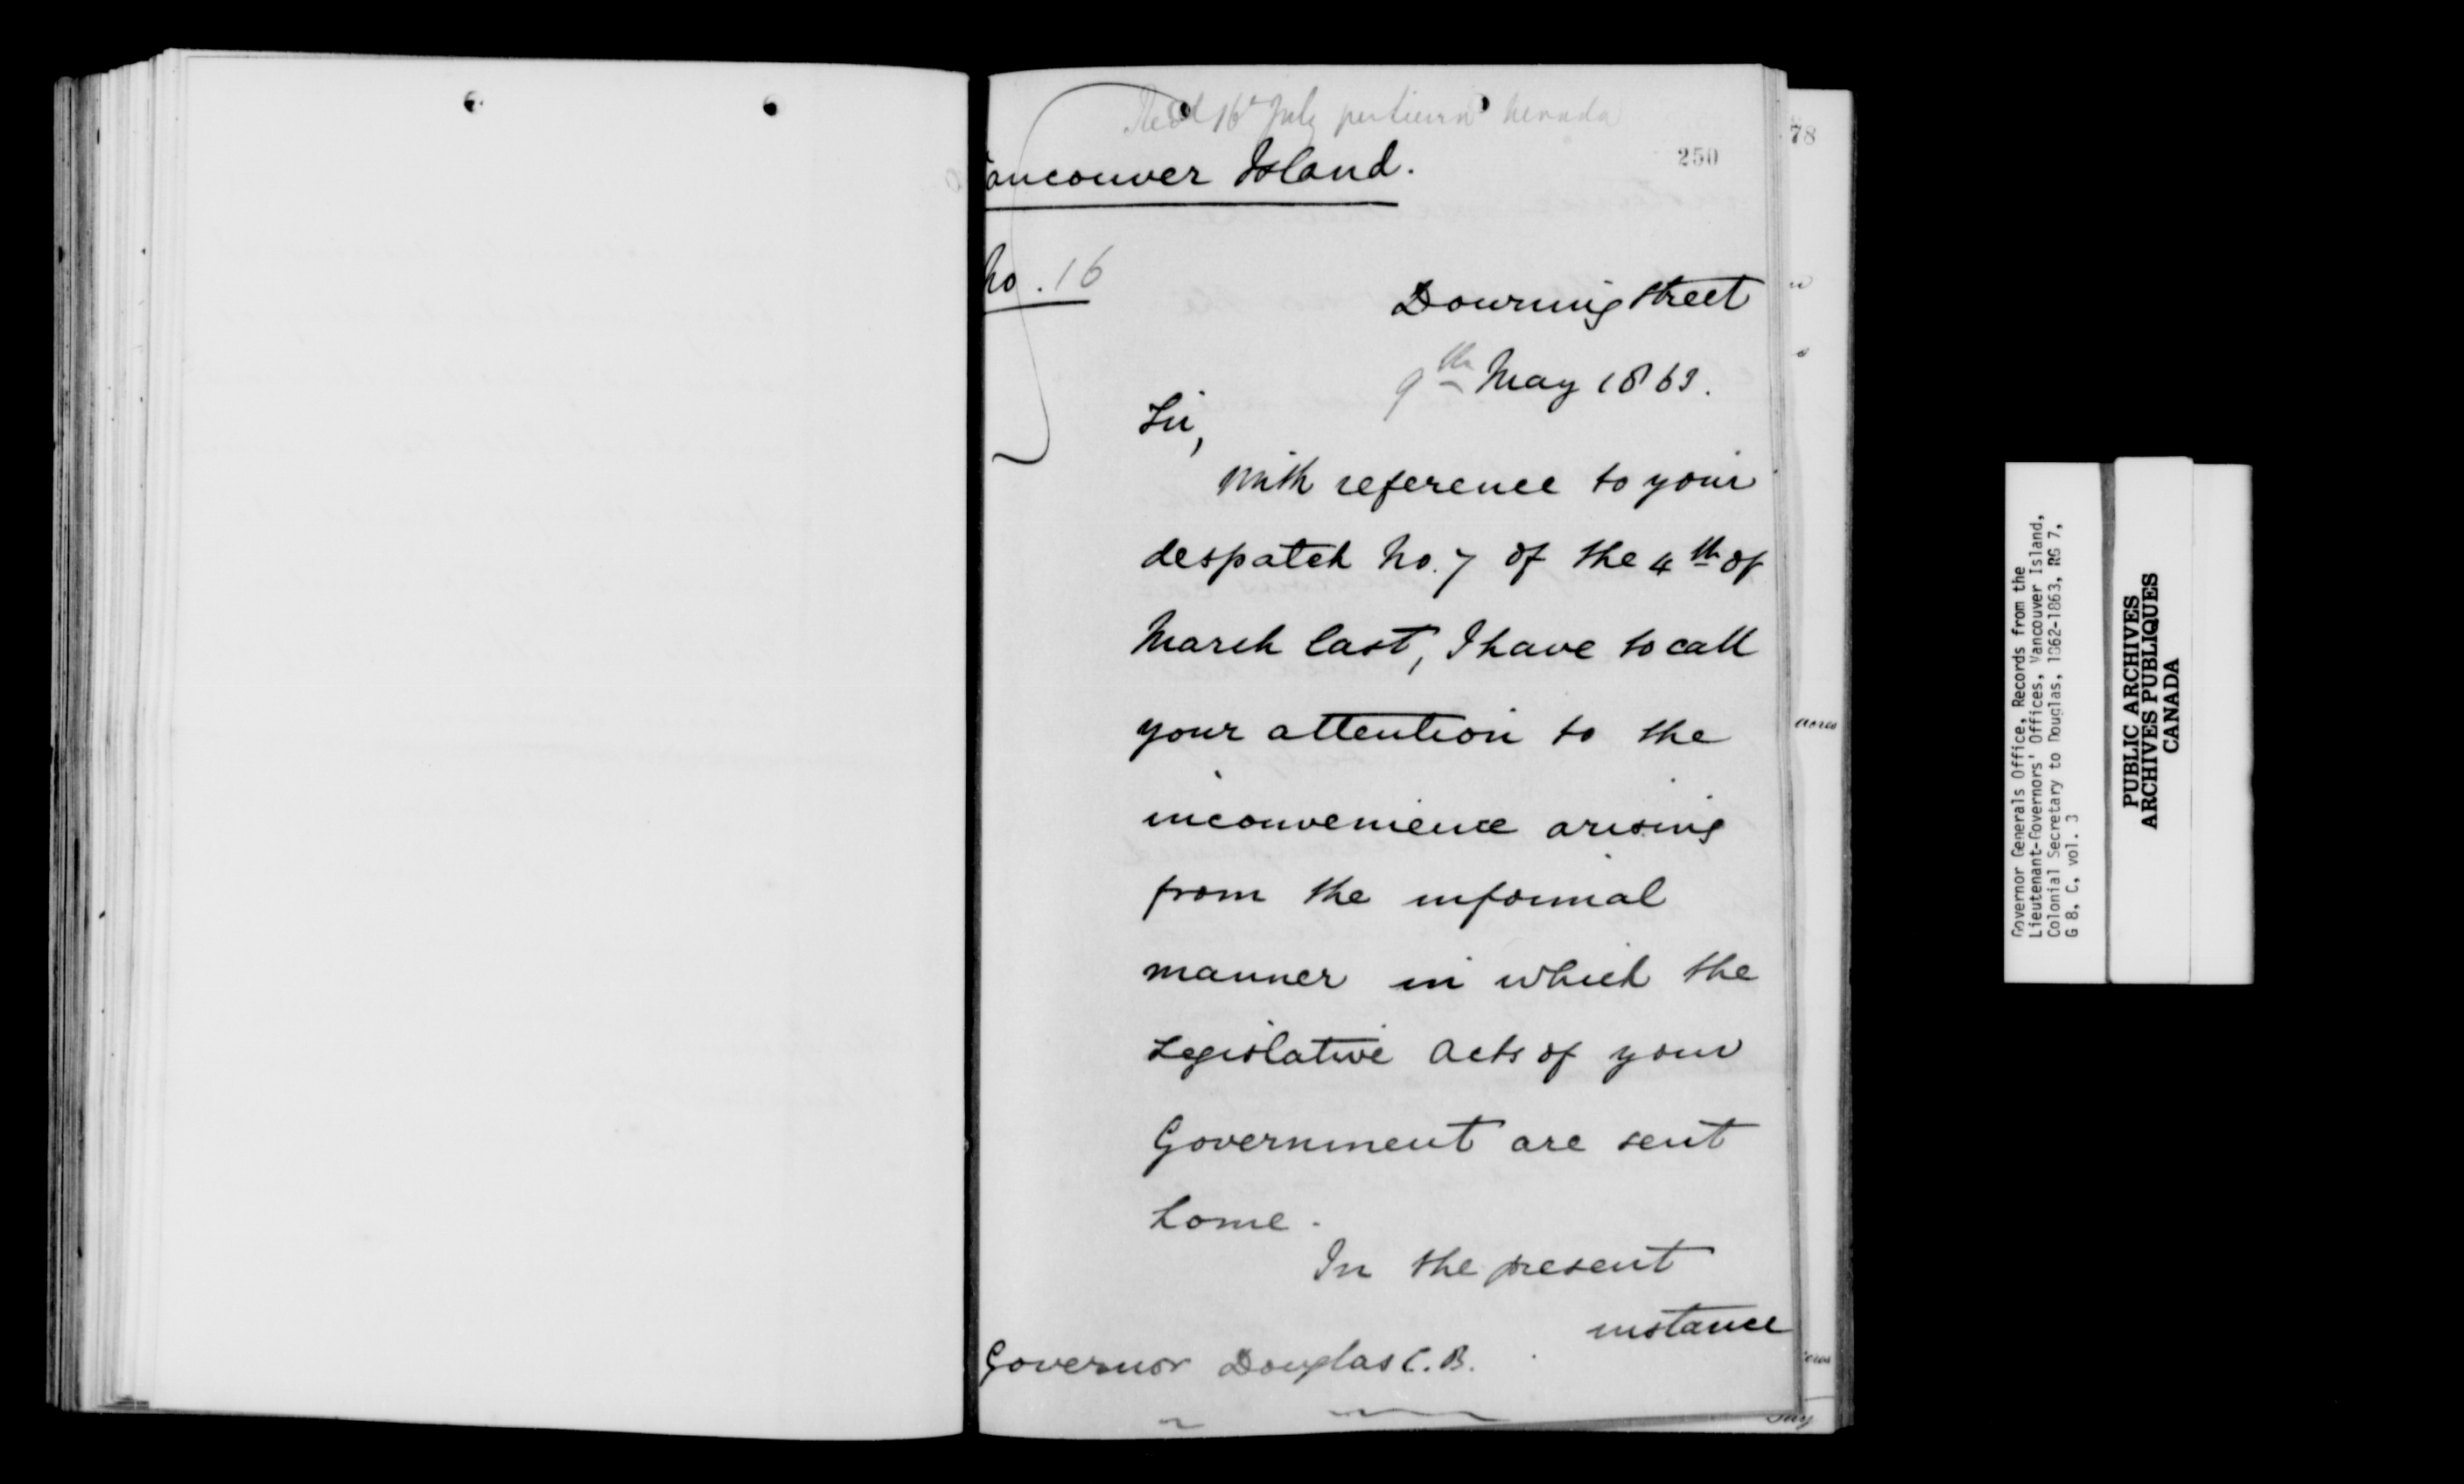 Recd 16 July per Sierra Nevada
250
ancouver Island.
No. 16
Downing Street
9th May 1863.
Sir,
With reference to your
despatch No. 7 of the 4th of
March last, I have to call
your attention to the
inconvenience arising
from the informal
manner in which the
Legislative Acts of your
Government are sent
home.
In the present
instance
Governor Douglas C.B.
78
acres
Governor Generals Office, Records from the
Lieutenant-Governors' Offices, Vancouver Island,
Colonial Secretary to Douglas, 1862-1863, RG 7,
G 8, C, vol. 3
PUBLIC ARCHIVES
ARCHIVES PUBLIQUES
CANADA